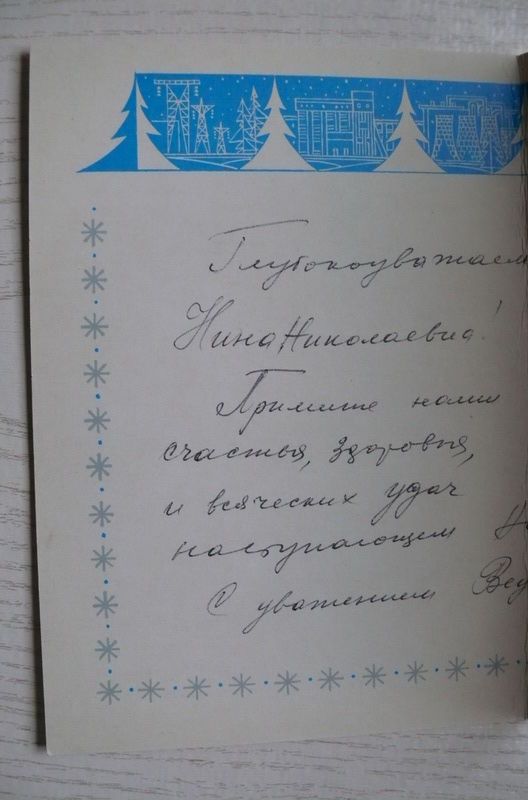 Глубокоуважаем
Нина Николаевна!
Примите наши
счастья, здоровья,
и всяческих удач
наступающем Но
С уважением Вед